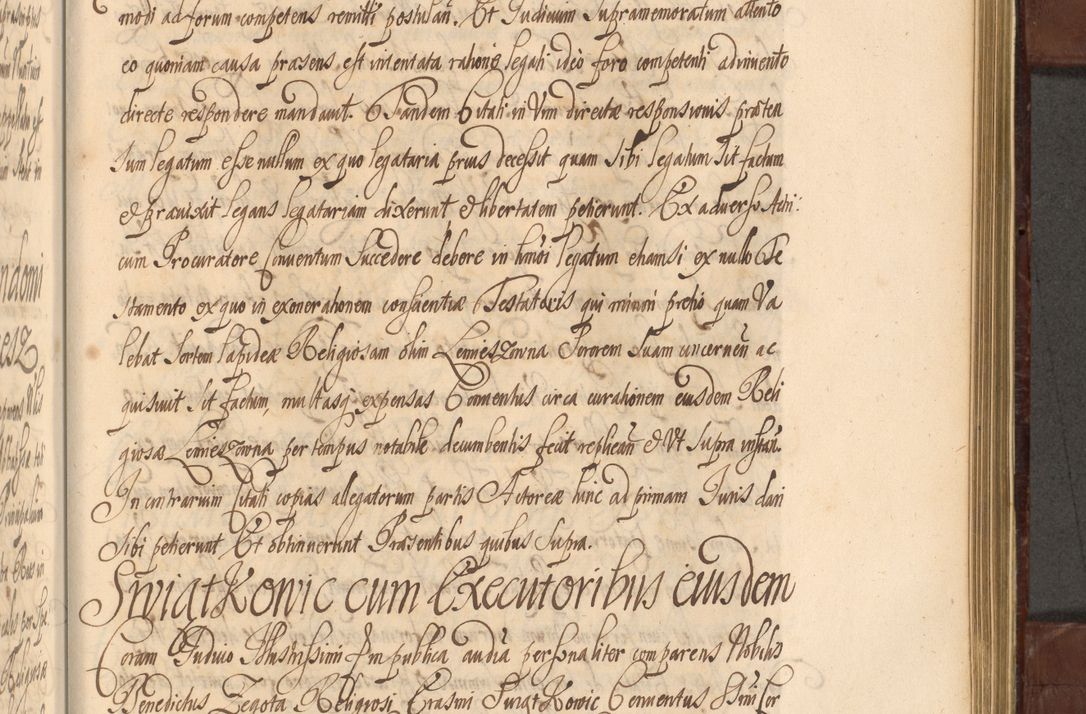 modi ad forum competens remitti postulan. Et Judicium supramemoratum attento
eo quoniam causa præsens est intentata ratione legati ideo foro competenti adinvento
directe respondere mandavit. Tandem Citati in vim directæ responsionis præten
sum legatum esse nullum ex quo legataria prius decessit quam sibi legatum sit factum
& prævixit legans legatariam dixerunt & libertatem petierunt. Ex adverso Acti:
cum Procuratore Conventum succedere debere in hmõi legatum etiamsi ex nullo Te
stamento ex quo in exonerationem conscientiæ Testatoris qui minori pretio quam va
lebat sortem lapideæ Religiosam olim Lemieszowna Sororem suam concernen̄ ac
quisivit sit factum, multasq expensas Conventus circa curationem eiusdem Reli
giosæ Lemieszowna per tempus notabile decumbentis fecit replican̄ & ut supra instan̄.
In contrarium Citati copias allegatorum partis Actoreæ hinc ad primam Juris dari
sibi petierunt Et obtinuerunt Præsentibus quibus supra.
SwiątKowic cum Executoribus eiusdem
Coram Judicio Illustrissimi in publica audiā personaliter comparens Nobilis
Benedictus Zegota Religiosi Erasmi SwiątKowic Conventus